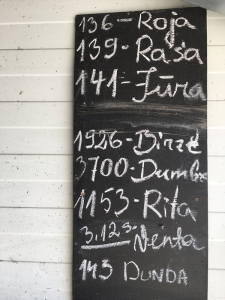 136-Roja
139-Rasa
141-Jūra
1926-Birze
3700-Dumbr
1153-Rita
3,123-Venta
143 DUNDA